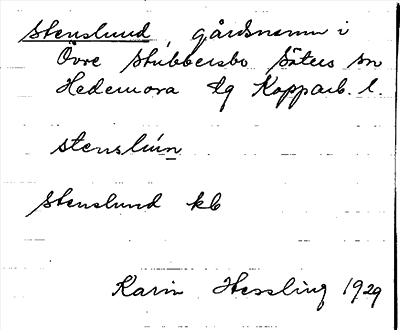 Stenslund, gårdsnamn i
Övre Stubbersbo Säters sn
Hedemora tg Kopparb. l.
stenslún
Stenslund kb
Karin Hessling 1929